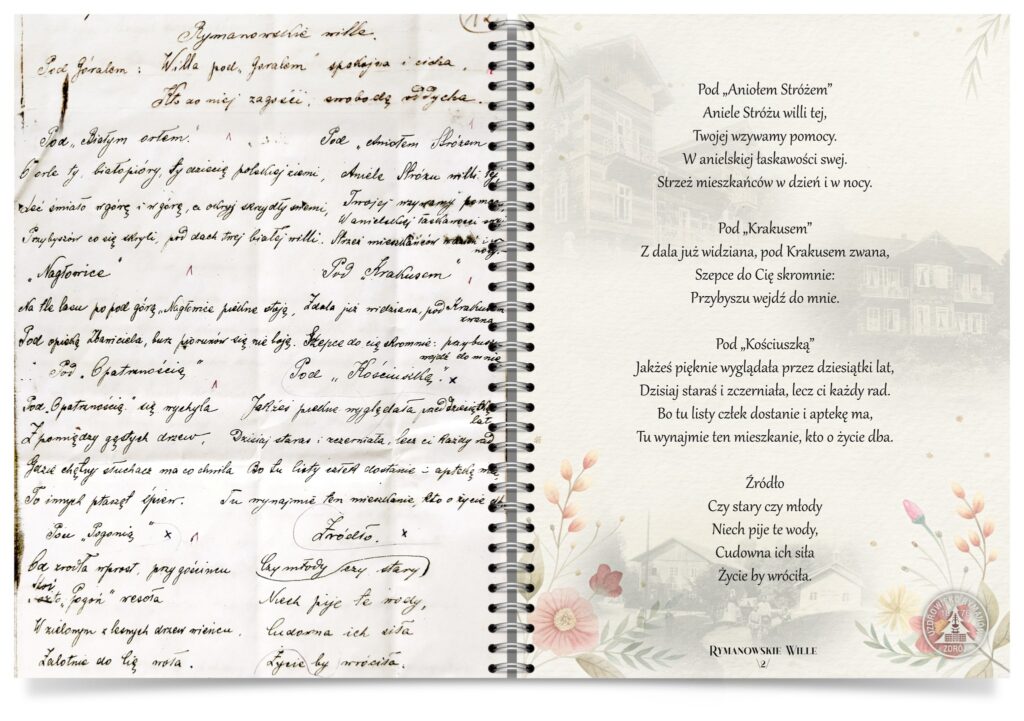 Rymanowskie wille.
Pod Góralem: Willa pod „Góralem" spokojna i cicha.
Kto do niej zagości, swobodą oddycha.
Pod „Białym orłem."
O orle ty, białopióry, Ty dziecię polskiej ziemi,
Leć śmiało w górę i w górę, a okryj skrzydły swemi,
Przybyszów co się skryli, pod dach twej białej willi.
„Nagłowice"
Na tle lasu po pod górą, „Nagłowice piękne stoją,
Pod opieką Zbawiciela, burz piorunów się nie boją.
Pod „Opatrznością"
Pod „Opatrznością" się wychyla
Z pomiędzy gęstych drzew,
Gdzie chętny słuchacz ma co chwila
To innych ptasząt śpiew.
Pod „Pogonią"
Od źródła wprost, przy gościńcu
Stoi „Pogoń" wesoła
W zielonym z leśnych drzew wieńcu,
Zalotnie do Cię woła.
Pod „Aniołem Stróżem
Aniele Stróżu willi tej,
Twojej wzywamy pomocy
W anielskiej łaskawości swej
Strzeż mieszkańców w dzień i w
nocy.
Pod „Krakusem"
Zdala już widziana, pod Krakusem
zwana
Szepce do cię skromnie: przybyszu
wejdź do mnie
Pod „Kościuszką."
Jakżeś pięknie wyglądała przez dziesiątki
lat,
Dzisiaj staraś i zczerniała, lecz ci każdy rad
Bo tu listy człek dostanie i aptekę ma,
Tu wynajmie ten mieszkanie, kto o życie dba
Źródło.
Czy młody czy stary
Niech pije te wody,
Cudowna ich siła
Życie by wróciła.
Pod „Aniołem Stróżem"
Aniele Stróżu willi tej,
Twojej wzywamy pomocy.
W anielskiej łaskawości swej.
Strzeż mieszkańców w dzień i w nocy.
Pod „Krakusem"
Z dala już widziana, pod Krakusem zwana,
Szepce do Cię skromnie:
Przybyszu wejdź do mnie.
Pod „Kościuszką"
Jakżeś pięknie wyglądała przez dziesiątki lat,
Dzisiaj staraś i zczerniała, lecz ci każdy rad.
Bo tu listy człek dostanie i aptekę ma,
Tu wynajmie ten mieszkanie, kto o życie dba.
Źródło
Czy stary czy młody
Niech pije te wody,
Cudowna ich siła
Życie by wróciła.
Rymanowskie Wille
/2/